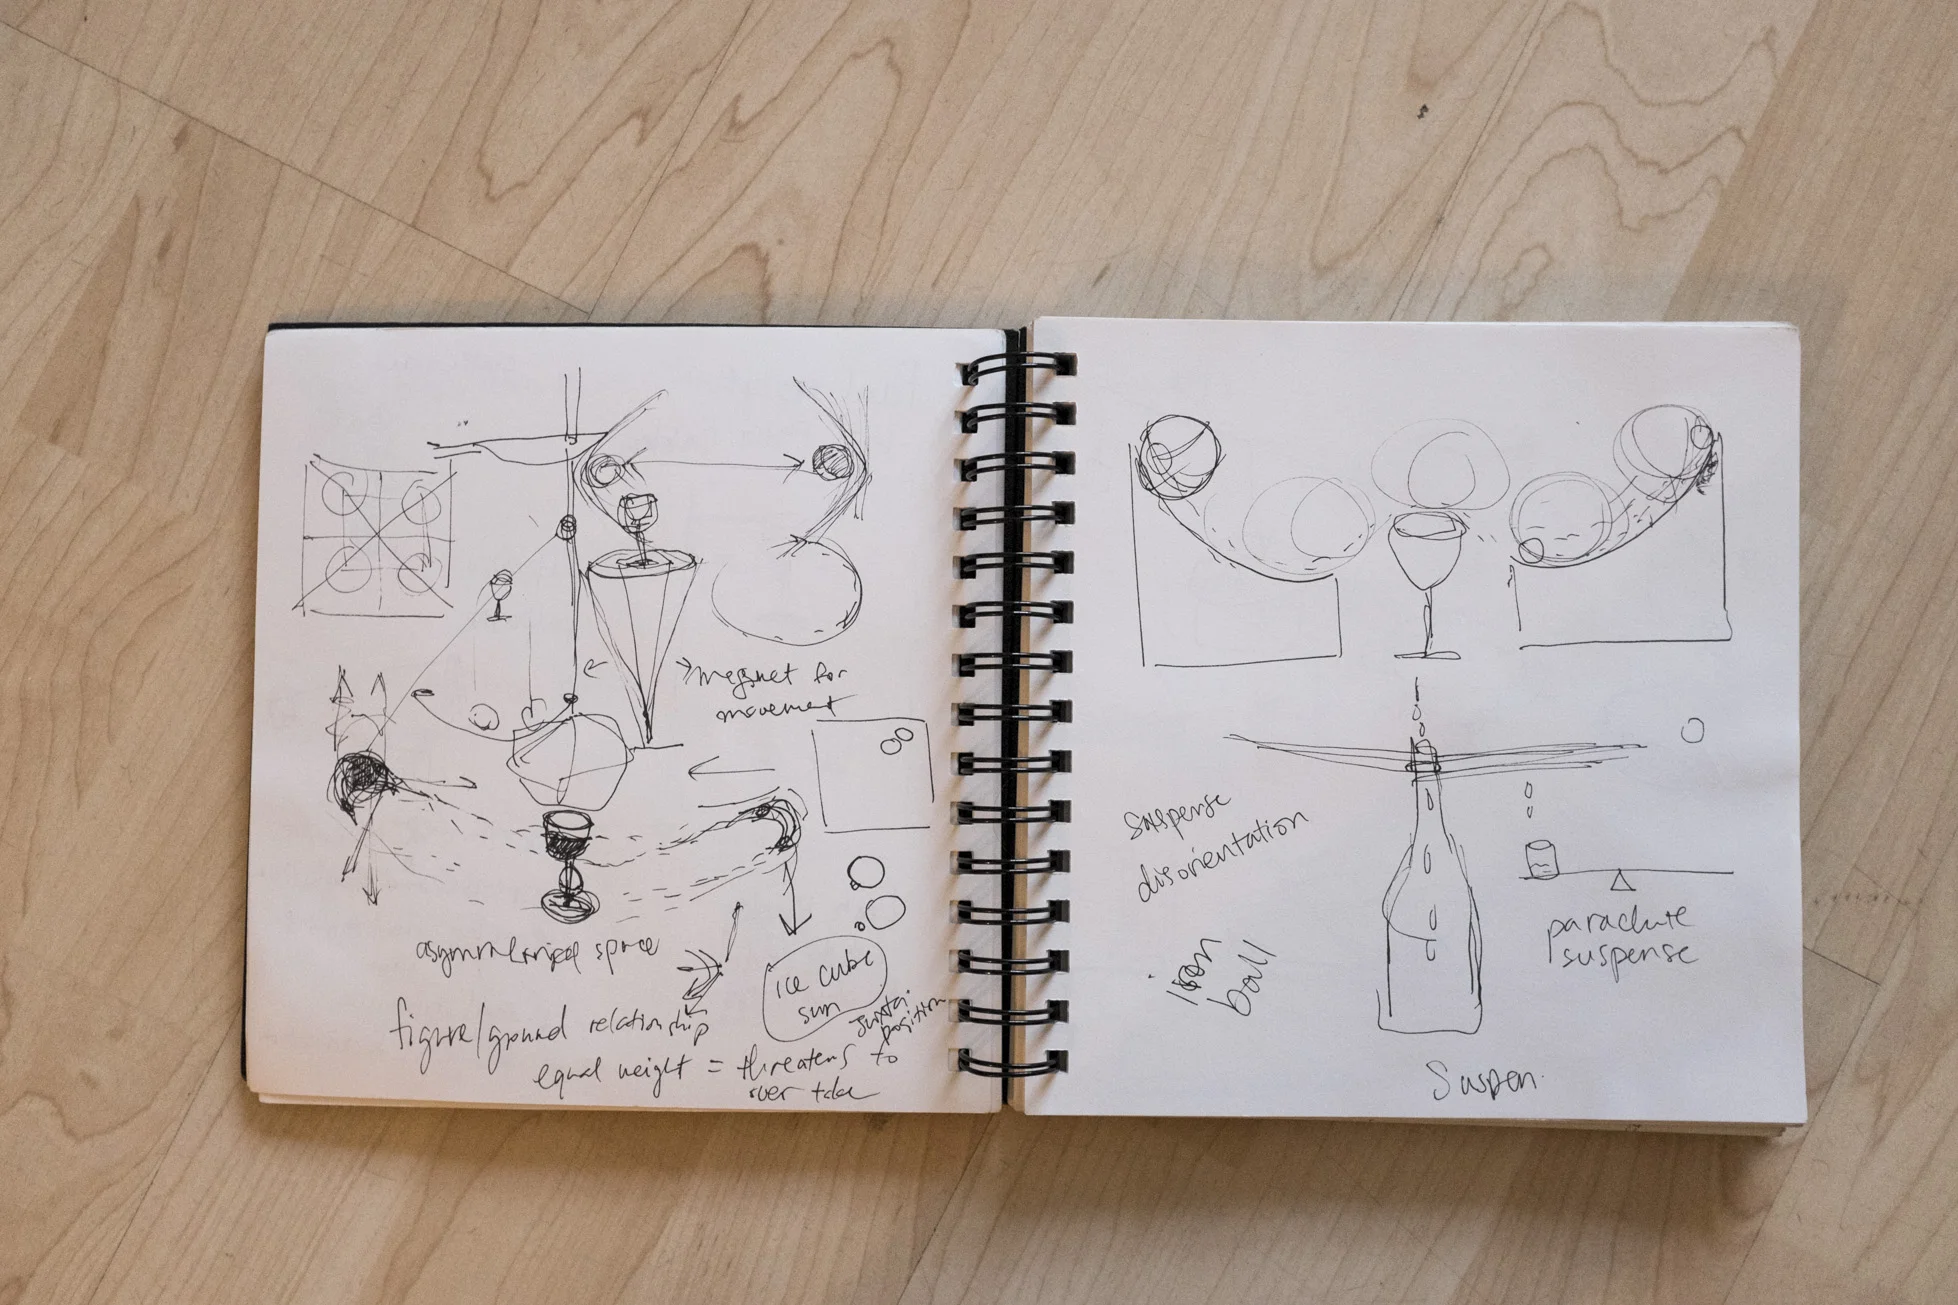 magnet for
movement
asymmetrized space
figure/ground relationship
equal weight = threatens to
over take
ice cube
sun
juxta-
position
suspense
disorientation
iron
ball
parachute
suspense
Suspen.